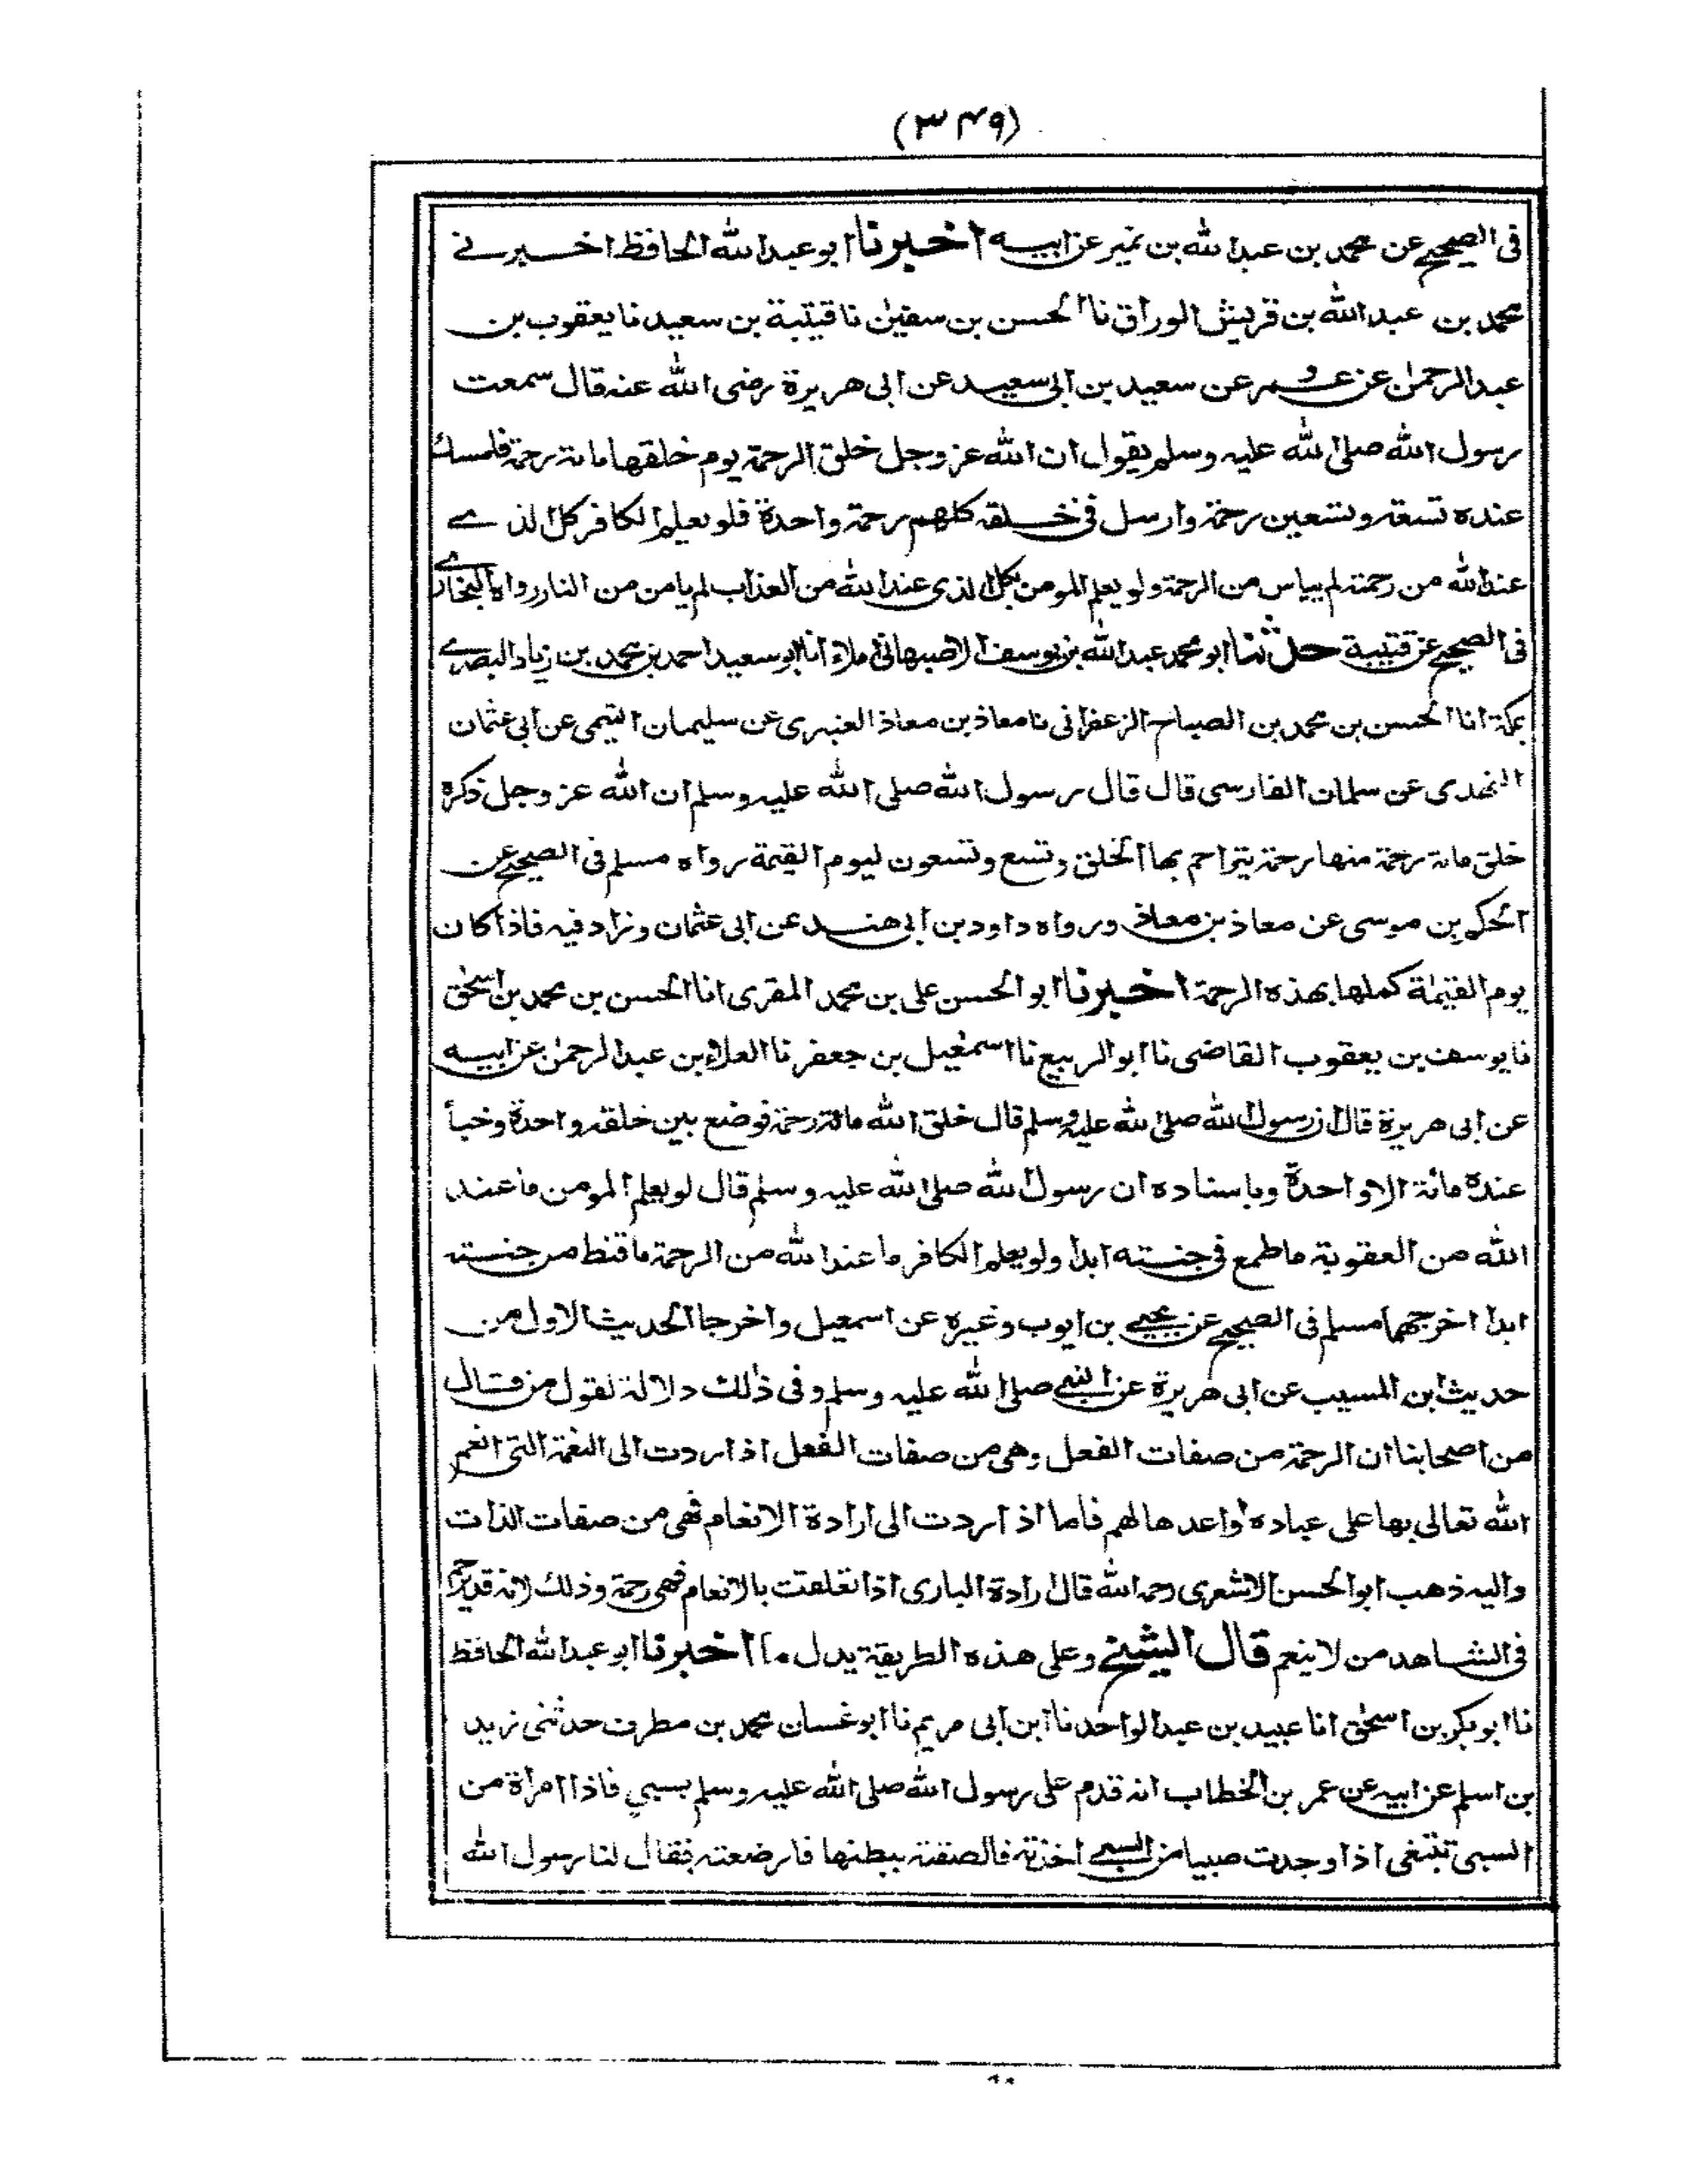 (٣٤٩)
فى الصحيح عن محمد بن عبد الله بن نمير عن ابيه اخبرنا ابو عبد الله الحافظ اخبرنے
محمد بن عبد الله بن قريش الوراق نا الحسن بن سفيٰن نا قتيبة بن سعيد نا يعقوب بن
عبد الرحمٰن عن عمرو عن سعيد بن ابى سعيد عن ابى هريرة رضى الله عنه قال سمعت
رسول الله صلى الله عليه وسلم يقول ان الله عز وجل خلق الرحمة يوم خلقها مائة رحمة فامسك
عنده تسعة وتسعين رحمة وارسل فى خلقه كلهم رحمة واحدة فلو يعلم الكافر كل الذے
عند الله من رحمته لم يياس من الرحمة ولو يعلم المومن بكل الذى عند الله من العذاب لم يامن من النار رواه البخارے
فى الصحيح عن قتيبة حدثنا ابو محمد عبد الله بن يوسف الاصبهانى املاء انا ابو سعيد احمد بن محمد بن زياد البصرے
بمكة انا الحسن بن محمد بن الصباح الزعفرانى نا معاذ بن معاذ العنبرى عن سليمان التيمى عن ابى عثمان
النهدى عن سلمان الفارسى قال قال رسول الله صلى الله عليه وسلم ان الله عز وجل ذكره
خلق مائة رحمة منها رحمة يتراحم بها الخلق وتسع وتسعون ليوم القيمة رواه مسلم فى الصحيح عن
الحكم بن موسى عن معاذ بن معاذ ورواه داود بن ابى هند عن ابى عثمان وزاد فيه فاذا كان
يوم القيمٰة كملها بهذه الرحمة اخبرنا ابو الحسن على بن محمد المقرى انا الحسن بن محمد بن اسحٰق
نا يوسف بن يعقوب القاضى نا ابو الربيع نا اسمٰعيل بن جعفر نا العلاء بن عبد الرحمٰن عن ابيه
عن ابى هريرة قال ان رسول الله صلى الله عليه وسلم قال خلق الله مائة رحمة فوضع بين خلقه واحدة وخبأ
عنده مائة الا واحدة وباسناده ان رسول الله صلى الله عليه وسلم قال لو يعلم المومن ما عند
الله من العقوبة ما طمع فى جنته ابدا ولو يعلم الكافر ما عند الله من الرحمة ما قنط من جنته
ابدا اخرجهما مسلم فى الصحيح عن يحيى بن ايوب وغيره عن اسمعيل واخرجا الحديث الاول من
حديث ابن المسيب عن ابى هريرة عن النبى صلى الله عليه وسلم وفى ذٰلك دلالة لقول من قال
من اصحابنا ان الرحمة من صفات الفعل وهى من صفات الفعل اذا ردت الى النعمة التى انعم
الله تعالى بها على عباده او اعدها لهم فاما اذا ردت الى ارادة الانعام فهى من صفات الذات
واليه ذهب ابو الحسن الاشعرى رحمه الله قال ارادة البارى اذا تعلقت بالانعام فهى رحمة وذلك لانه قد يرحم
فى الشاهد من لا ينعم قال الشيخ وعلى هذه الطريقة يدل ما اخبرنا ابو عبد الله الحافظ
نا ابو بكر بن اسحٰق انا عبيد بن عبد الواحد نا ابن ابى مريم نا ابو غسان محمد بن مطرف حدثنى زيد
بن اسلم عن ابيه عن عمر بن الخطاب انه قدم على رسول الله صلى الله عليه وسلم بسبى فاذا امراة من
السبى تبتغى اذا وجدت صبيا من السبى اخذته فالصقته ببطنها فارضعته فقال لنا رسول الله